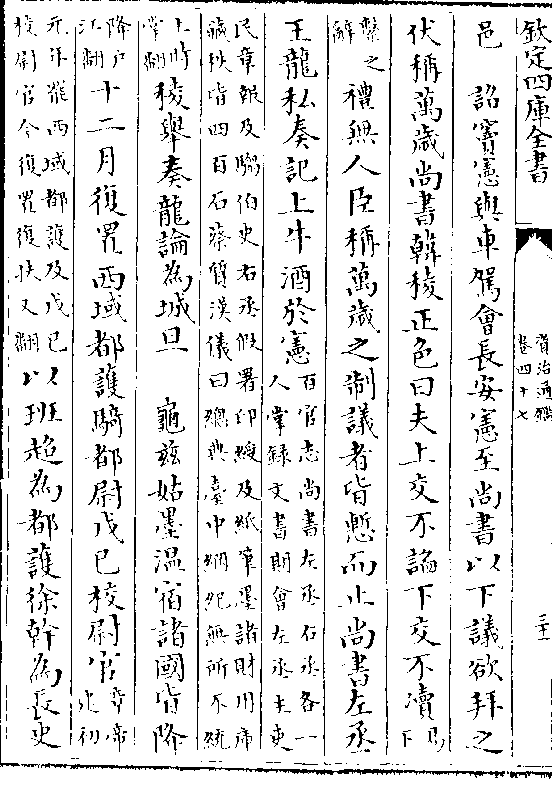 欽定四庫全書
資治通鑑
卷四十七
邑　詔竇憲與車駕會長安憲至尚書以下議欲拜之
伏稱萬歲尚書韓稜正色曰夫上交不諂下交不瀆易下
繫之辭禮無人臣稱萬歲之制議者皆慙而止尚書左丞
王龍私奏記上牛酒於憲百官志尚書左丞右丞各一人掌録文書期會左丞主吏
民章報及騶伯史右丞假署印綬及紙筆墨諸財用庫藏秩皆四百石蔡質漢儀曰總典臺中綱紀無所不統
上時掌翻稜舉奏龍論為城旦　龜兹姑墨温宿諸國皆降
降户江翻十二月復置西域都護騎都尉戊己校尉官章帝建初
元年罷西域都護及戊己校尉官今復置復扶又翻以班超為都護徐幹為長史